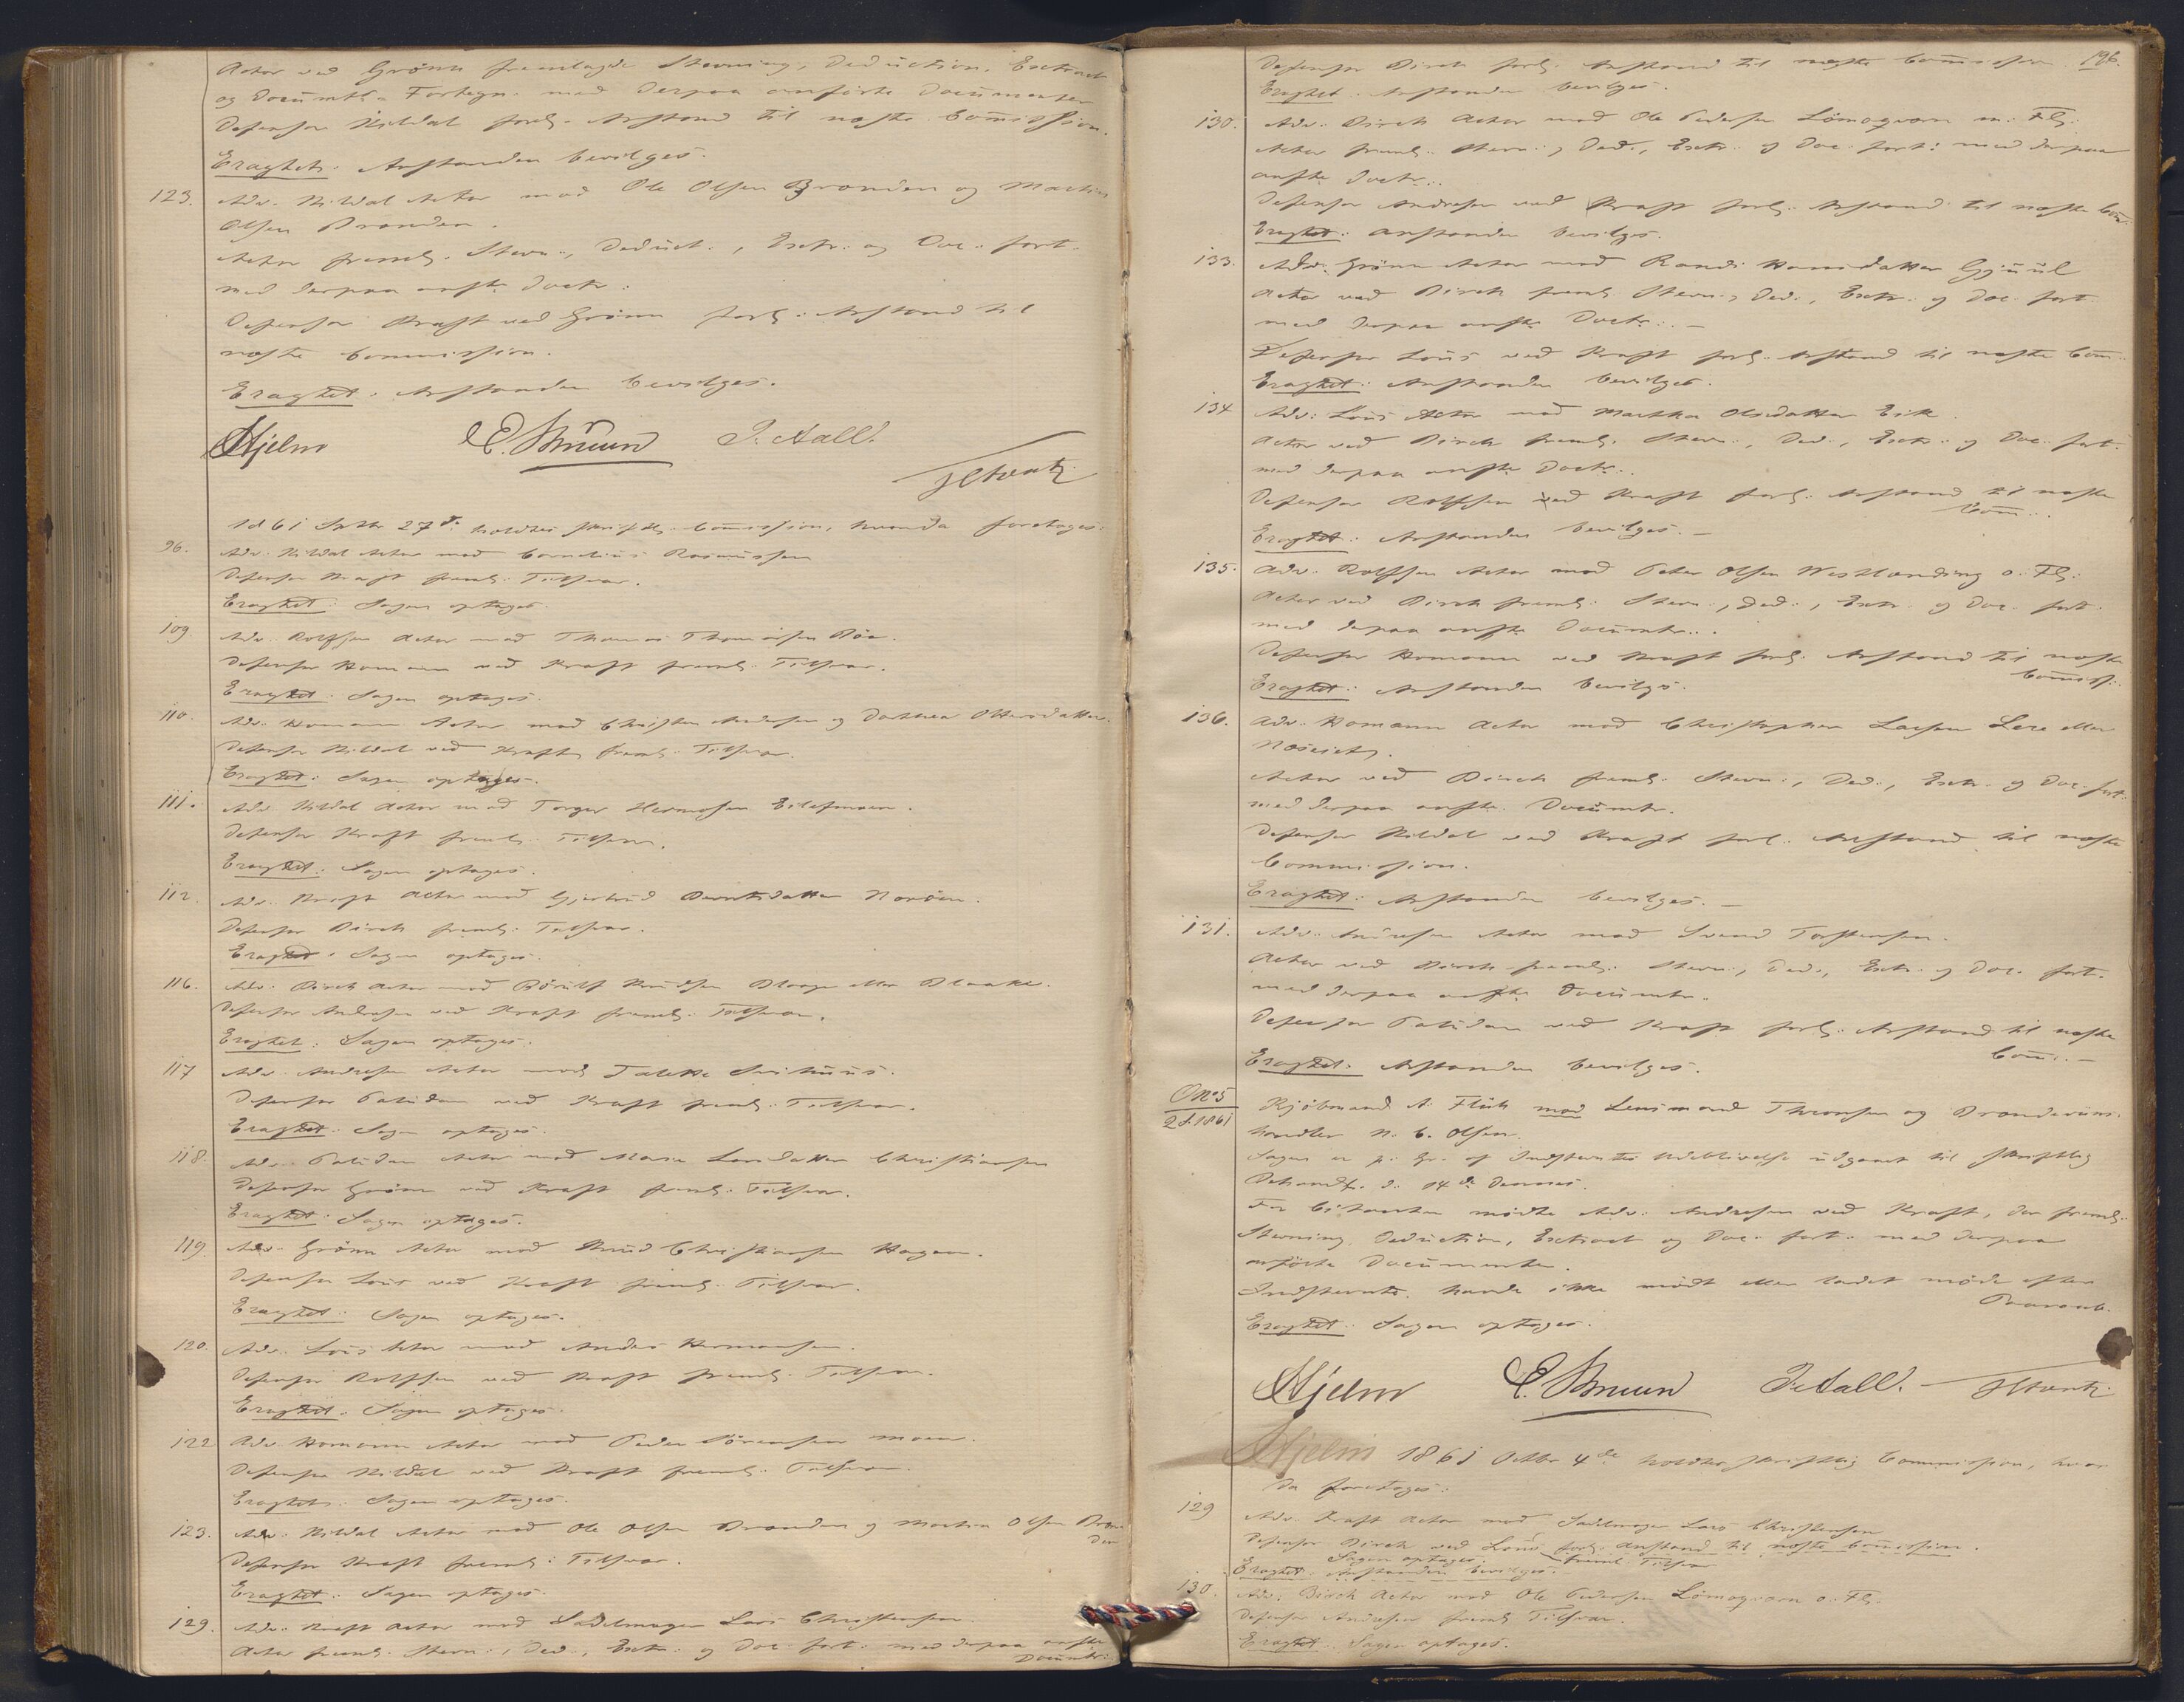 Actor ved Grönn fremlagde Stevning, Deduction, Extract
og Documts- Fortegn. med derpaa anførte Documenter
Defensor Kildal forl. Anstand til næste Commission.
Eragtet: Anstanden bevilges.
123. Adv. Kildal Actor mod Ole Olsen Branden og Martin
Olsen Branden.
Actor freml. Stevn:, Deduct:, Extr: og Doc: fort.
med derpaa anfte Doctr:
Defensor Kraft ved Grönn forl: Anstand til
næste Commission.
Eragtet: Anstanden bevilges.
Hjelm E. Bruun J. Aall.
1861 Septbr 27de holdtes skriftl. Commission, hvorda foretoges:
96. Adv. Kildal Actor mod Cornelius Rasmussen
Defensor Kraft freml: Tilsvar.
Eragtet: Sagen optages.
109. Adv. Rolfsen Actor mod Thomas Thomasen Böe.
Defensor Homann ved Kraft freml: Tilsvar.
Eragtet: Sagen optages.
110. Adv. Homann Actor mod Christen Andersen og Dorthea Ottersdatter.
Defensor Kildal ved Kraft freml: Tilsvar.
Eragtet: Sagen optages.
111. Adv. Kildal Actor mod Torger Hermosen
Defensor Kraft freml: Tilsvar.
Eragtet: Sagen optages.
112. Adv. Kraft Actor mod Gjertrud Berntsdatter
Defensor Birch freml: Tilsvar.
Eragtet: Sagen optages.
116. Adv. Birch Actor mod Knudsen Blaage eller Blaakke.
Defensor Andresen ved Kraft freml: Tilsvar.
Eragtet: Sagen optages.
117 Adv. Andresen Actor mod
Defensor ved Kraft freml: Tilsvar.
Eragtet: Sagen optages.
118. Adv. Actor mod Maren Larsdatter Christiansen
Defensor Grönn ved Kraft freml: Tilsvar.
Eragtet: Sagen optages.
119. Adv. Grönn Actor mod Knud Christiansen Hagen.
Defensor Lous ved Kraft freml: Tilsvar.
Eragtet: Sagen optages.
120. Adv. Lous Actor mod Anders Hermansen.
Defensor Rolfsen ved Kraft freml: Tilsvar.
Eragtet: Sagen optages.
122 Adv. Homann Actor mod Peder Sörensen Moen.
Defensor Kildal ved Kraft freml: Tilsvar.
Eragtet: Sagen optages.
123. Adv. Kildal Actor mod Ole Olsen Branden og Martin Olsen Bran
den
Defensor Kraft freml: Tilsvar.
Eragtet: Sagen optages.
129. Adv. Kraft Actor mod Sadelmager Lars Christensen
Actor freml. Stevn:, Ded:, Extr: og Doc: fort: med derpaa anfte
Documtr:
196.
Defensor Birch forl: Anstand til næste Commission
Eragtet: Anstanden bevilges.
130. Adv. Birch Actor mod Ole Pedersen Lömoqvarn m. Fl:
Actor freml: Stevn:, Ded:, Extr: og Doc: fort: med derpaa
anfte Doctr:.
Defensor Andresen ved Kraft forl: Anstand til næste Com:
Eragtet: Anstanden bevilges.
133. Adv. Grönn Actor mod Randi Hansdatter Gjuul
Actor ved Birch freml. Stevn:, Ded:, Extr: og Doc: fort.
med derpaa anfte Doctr:. —
Defensor Lous ved Kraft forl: Anstand til næste Com:
Eragtet: Anstanden bevilges.
134 Adv. Lous Actor mod Martha Olsdatter Eik.
Actor ved Birch freml. Stevn:, Ded:, Extr: og Doc: fort.
med derpaa anfte Doctr:.
Defensor Rolfsen ved Kraft forl: Anstand til næste
Com:.
Eragtet: Anstanden bevilges. —
135. Adv. Rolfsen Actor mod Peter Olsen Westlanding o. Fl:
Actor ved Birch freml: Stevn:, Ded:, Extr: og Doc: fort.
med derpaa anfte Documtr:.
Defensor Homann ved Kraft forl: Anstand til næste
Commiss:.
Eragtet: Anstanden bevilges.
136. Adv. Homann Actor mod Christopher Larsen Lere eller
Næseiet.
Actor ved Birch freml: Stevn:, Ded:, Extr: og Doc: fort:
med derpaa anfte Documtr.
Defensor Kildal ved Kraft forl: Anstand til næste
Commission.
Eragtet: Anstanden bevilges. —
131. Adv. Andresen Actor mod Svend Torstensen.
Actor ved Birch freml: Stevn:, Ded:, Extr: og Doc: fort.
med derpaa anfte Documtr.
Defensor ved Kraft forl: Anstand til næste
Com:. —
Eragtet: Anstanden bevilges.
O No 5
2 S. 1861 Kjöbmand A. Flük mod Lensmand Thronsen og Brændeviins-
handler N. C. Olsen.
Sagen er p: Gr. af Indstevntes Udeblivelse udgaaet til skriftlig
Behandl. d. 14de dennes.
For Citanten mødte Adv. Andresen ved Kraft, der freml:
Stevning, Deduction, Extract og Doc: fort: med derpaa
anførte Documenter.
Indstevnte havde ikke mødt eller ladet møde efter
Paaraab.
Eragtet: Sagen optages.
Hjelm E. Bruun J. Aall.
Hjelm 1861 Octbr 4de holdtes skriftlig Commission, hvor
da foretoges:
129 Adv. Kraft Actor mod Sadelmager Lars Christensen
Defensor Birch ved Lous forl: Anstand til næste Commission.
Sagen optages. freml Tilsvar
Eragtet: Anstanden bevilges.
130. Adv. Birch Actor mod Ole Pedersen Lömoqvarn o. Fl:
Defensor Andresen freml Tilsvar.
Eragtet: Sagen optages.